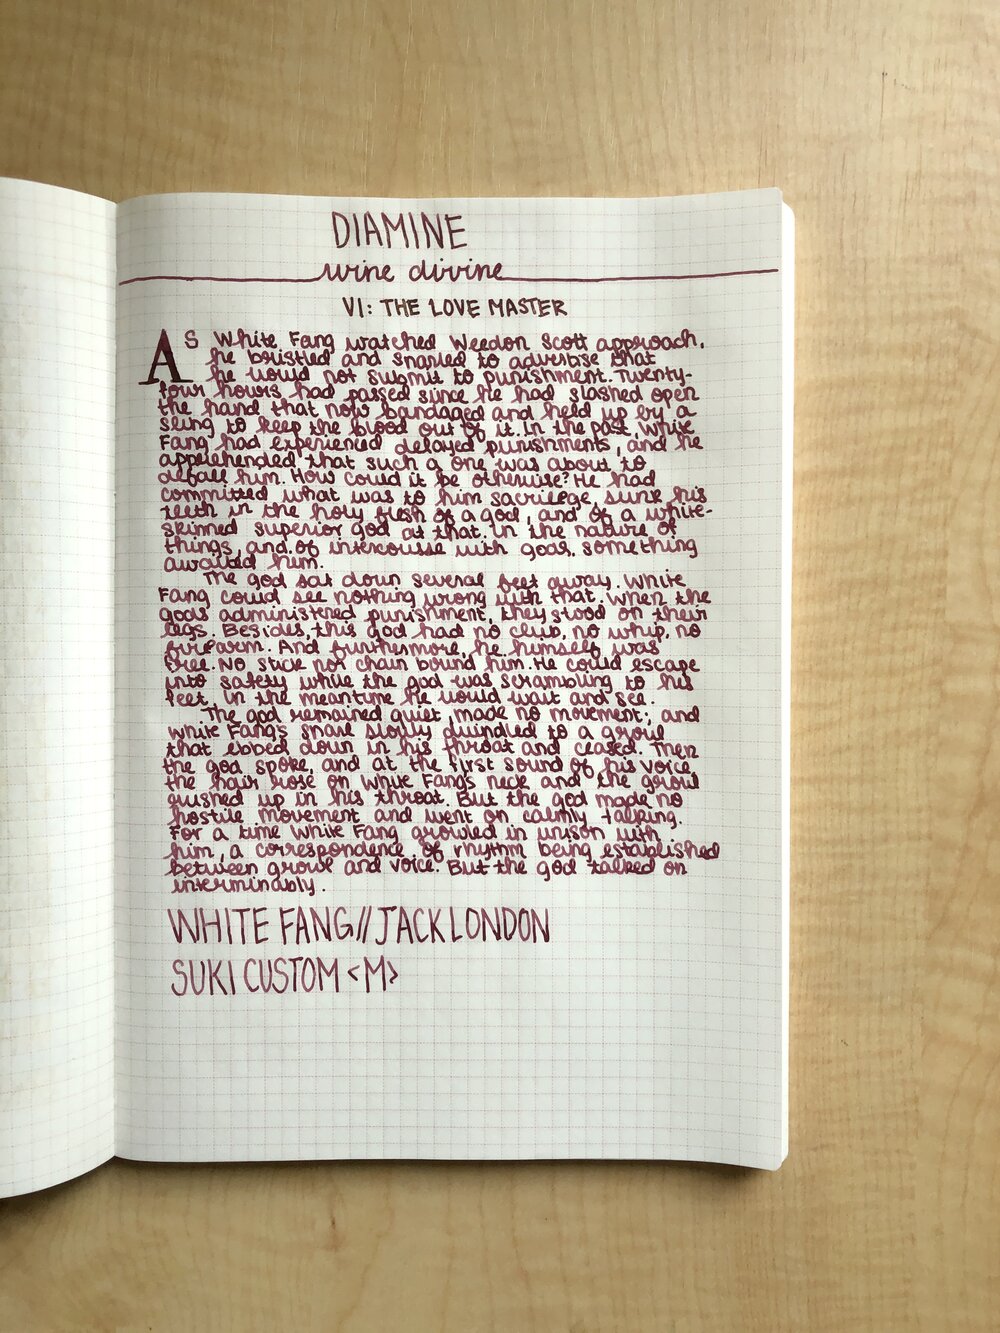 DIAMINE
wine divine
VI: THE LOVE MASTER
AS White Fang watched Weedon Scott approach,
he bristled and snarled to advertise that
he would not submit to punishment. Twenty-
four hours had passed since he had slashed open
the hand that now bandaged and held up by a
sling to keep the blood out of it. In the past White
Fang had experienced delayed punishments, and he
apprehended that such a one was about to
befall him. How could it be otherwise? He had
committed what was to him sacrilege, sunk his
teeth in the holy flesh of a god, and of a white-
skinned superior god at that. In the nature of
things, and of intercourse with gods, something
awaited him.
The god sat down several feet away. White
Fang could see nothing wrong with that. When the
gods administered punishment, they stood on their
legs. Besides, this god had no club, no whip, no
firearm. And furthermore, he himself was
free. No stick nor chain bound him. He could escape
into safety while the god was scrambling to his
feet. In the meantime he would wait and see.
The god remained quiet, made no movement; and
White Fang's snarl slowly dwindled to a growl
that ebbed down in his throat and ceased. Then
the god spoke, and at the first sound of his voice
the hair rose on White Fang's neck and the growl
rushed up in his throat. But the god made no
hostile movement and went on calmly talking.
For a time White Fang growled in unison with
him, a correspondence of rhythm being established
between growl and voice. But the god talked on
interminably.
WHITE FANG // JACK LONDON
SUKI CUSTOM <M>